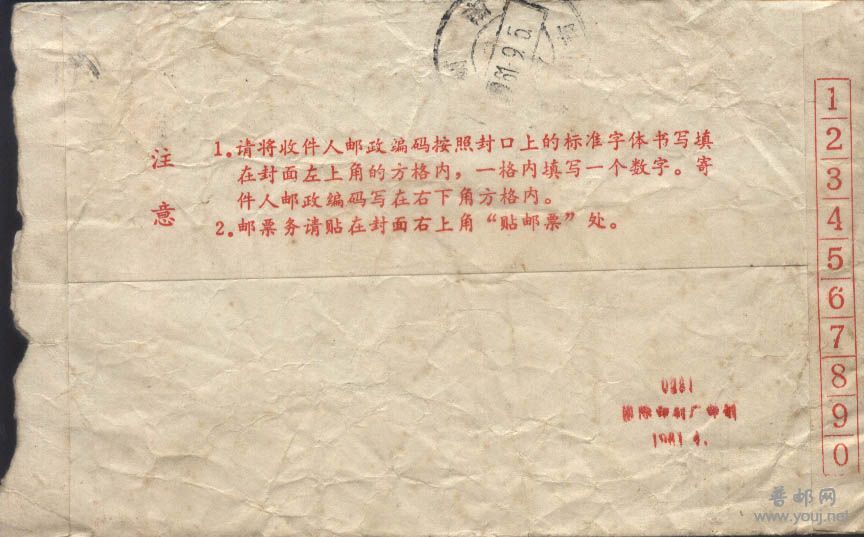 注意
1.请将收件人邮政编码按照封口上的标准字体书写填
在封面左上角的方格内，一格内填写一个数字。寄
件人邮政编码写在右下角方格内。
2.邮票务请贴在封面右上角“贴邮票”处。
1
2
3
4
5
6
7
8
9
0
普邮网
www.youj.net